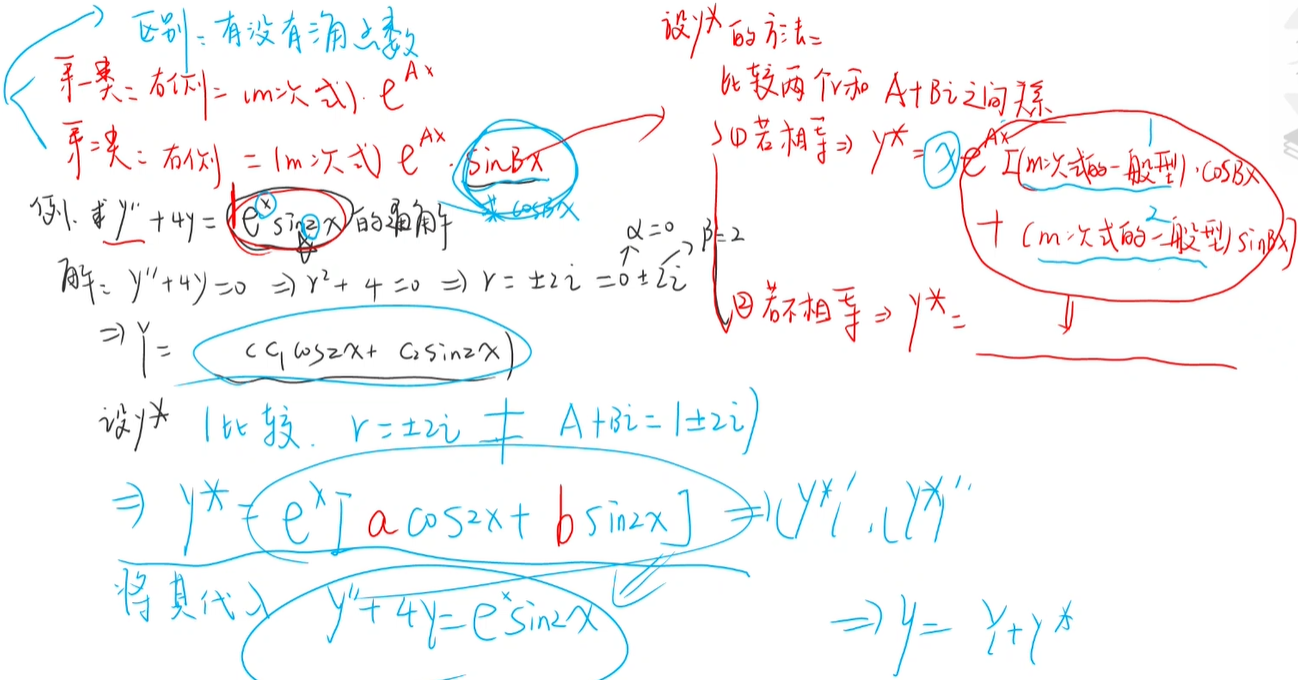 区别:有没有三角函数
第一类:右侧=(m次式)·e^{Ax}
第二类:右侧=(m次式)e^{Ax}·sinBx
或cosBx
例1.求y''+4y=e^x sin2x的通解
解:y''+4y=0 ⇒ r²+4=0 ⇒ r=±2i=0±2i
α=0 β=2
⇒Y=(C₁cos2x+C₂sin2x)
设y* (比较. r=±2i ≠ A+Bi=1±2i)
⇒ y*=e^x[acos2x+bsin2x] ⇒(y*)′,(y*)″
将其代入 y''+4y=e^x sin2x
⇒y=Y+y*
设y*的方法:
比较两个r和A+Bi之间关系
①若相等⇒ y*=x·e^{Ax}[(m次式的一般型)·cosBx
1
+(m次式的一般型)sinBx]
2
②若不相等⇒y*=